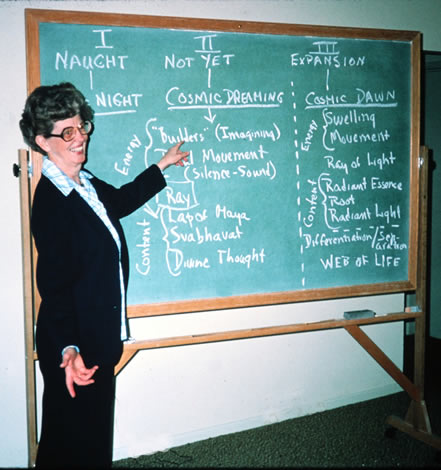 I
NAUGHT
NIGHT
II
NOT YET
COSMIC DREAMING
Energy
"Builders" (Imagining)
Movement
(Silence-Sound)
Ray
Content
Lap of Maya
Svabhavat
Divine Thought
III
EXPANSION
COSMIC DAWN
Energy
Swelling
Movement
Ray of Light
Content
Radiant Essence
Root
Radiant Light
Differentiation/Sep-
aration
WEB OF LIFE